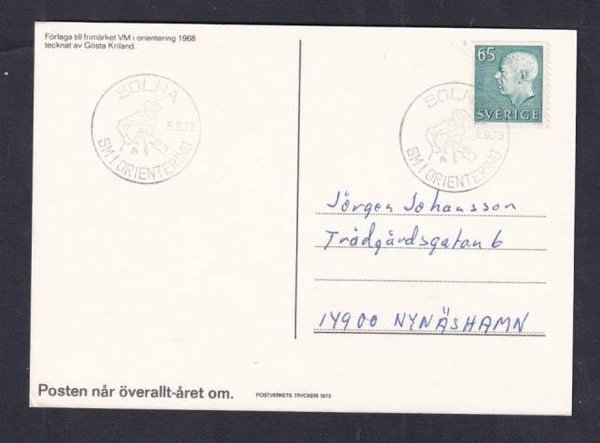 Förlaga till frimärket VM i orientering 1968
tecknat av Gösta Kriland.
SOLNA
9.9.73
SM I ORIENTERING
65
SVERIGE
SOLNA
9.9.73
SM I ORIENTERING
Jörgen Johansson
Trädgårdsgatan 6
14900 NYNÄSHAMN
Posten når överallt-året om.
POSTVERKETS TRYCKERI 1973